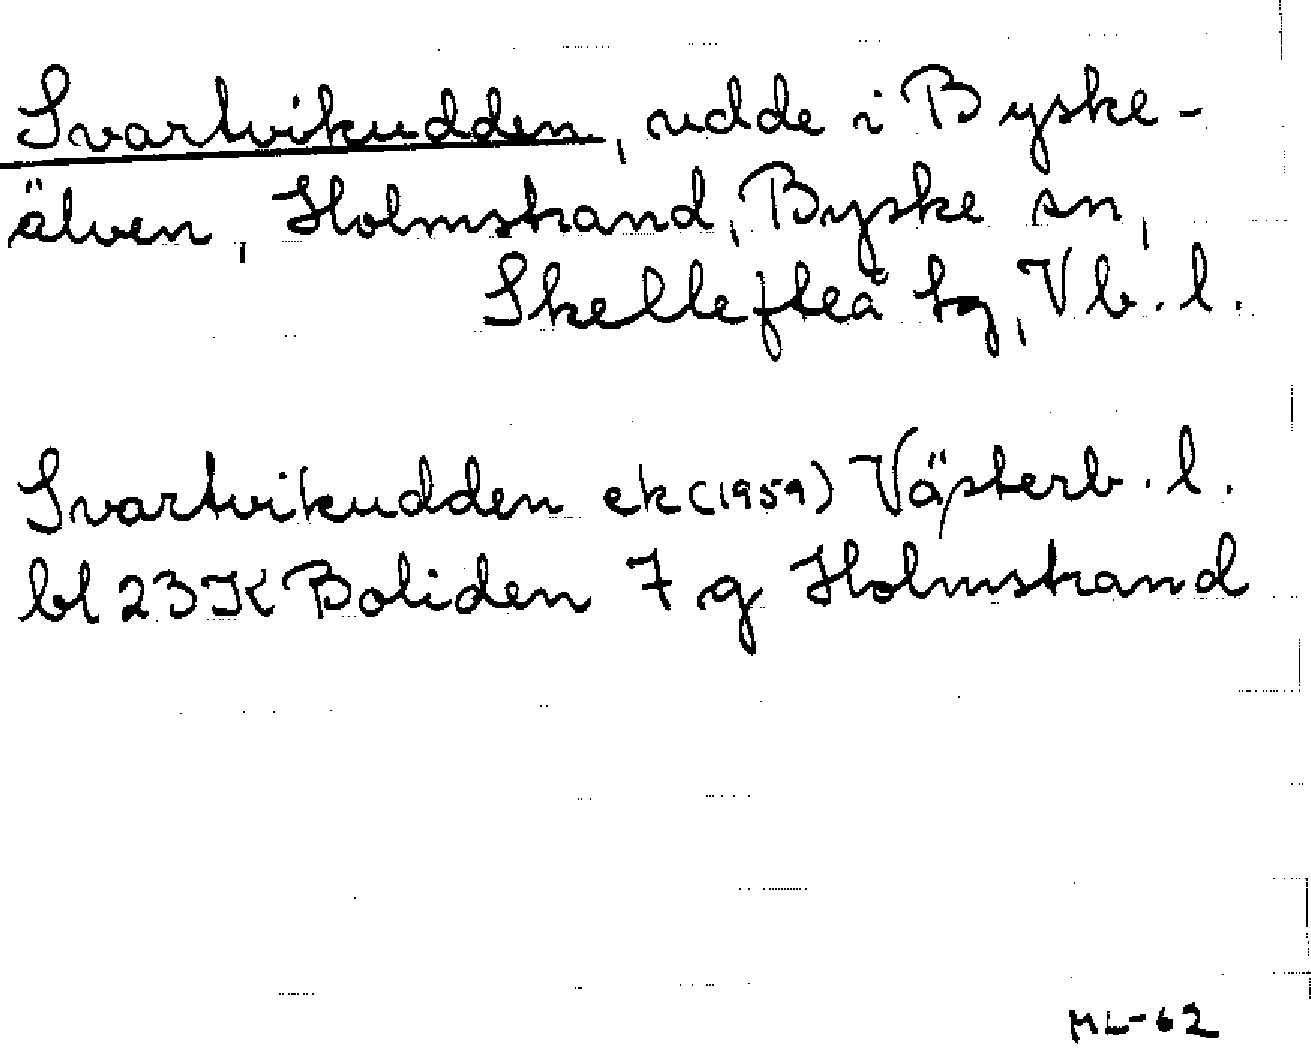 Svartvikudden, udde i Byske-
älven, Holmstrand, Byske sn,
Skellefteå tg, Vb.l.
Svartvikudden ek (1959) Västerb.l.
bl 23K Boliden 7 g Holmstrand
ML-62